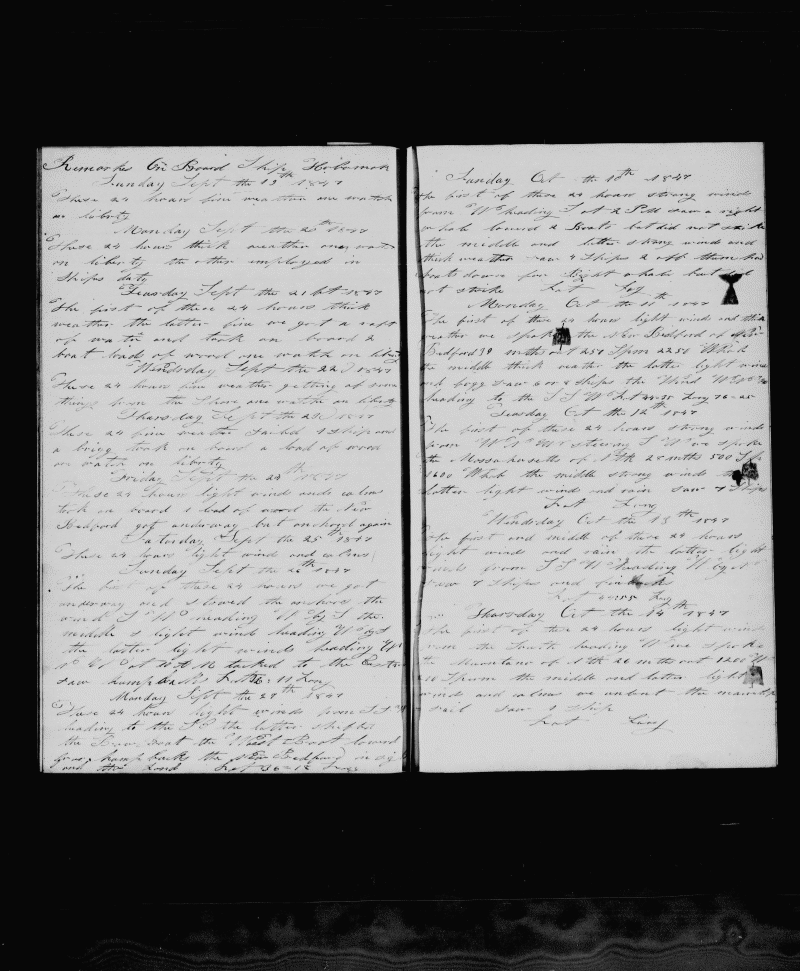 Remarks On Board Ship Hobomok
Sunday Sept the 19th 1847
These 24 hours fine weather one watch
on liberty
Monday Sept the 20th 1847
These 24 hours thick weather one watch
on liberty the other employed in
Ships duty
Teusday Sept the 21st 1847
The first of these 24 hours thick
weather the latter fine we got a raft
of water and took on board 2
boat loads of wood one watch on liberty
Wendsday Sept the 22 1847
These 24 hours fine weather getting of some
things from the Shore one watch on liberty
Thursday Sept the 23 1847
These 24 fine weather Sailed 1 Ship and
a brigg took on board a load of wood
one watch on liberty
Friday Sept the 24th 1847
These 24 hours light wind and calms
took on board 1 load of wood the New
Bedford got underway but anchord again
Saturday Sept the 25th 1847
These 24 hours light wind and calms
Sunday Sept the 26th 1847
The first of these 24 hours we got
underway and stowed the anchors the
wind S W heading W by S the
middle light wind heading W by S
the latter light winds heading W
N W at 10 A M tacked to the Eastw
saw humpbacks Lat Long
Monday Sept the 27th 1847
These 24 hours light winds from S S W
heading to the S E the latter shifted
the Bow boat the Waist Boat lowed
for humpbacks the New Bedford in sight
and the land Lat 36=12 Long
Sunday Oct the 10th 1847
the first of these 24 hours strong winds
from W heading S at 2 P M saw a right
whale lowerd 2 Boats but did not strike
the middle and latter strong winds and
thick weather saw 4 Ships 2 off them had
boats down for Right whales but did
not strike Lat Long
Monday Oct the 11th 1847
The first of these 24 hours light winds and thick
weather we spoke the New Bedford of New
Bedford 39 mths out 250 Sperm 2250 Whale
the middle thick weather the latter light winds
and fogg saw 6 or 8 ships the Wind W N W
heading to the S S W Lat Long 76=25
Teusday Oct the 12th 1847
The first of these 24 hours strong winds
from W N W stering S W we spoke
the Massasoits of Ntk 28 mths 500 Sp
1600 Whale the middle strong winds the
latter light wind and rain saw 7 Ships
Lat Long
Windsday Oct the 13th 1847
the first and middle of these 24 hours
light winds and rain the latter light
winds from S S W heading W by N
saw 7 Ships and
Lat Long
Thursday Oct the 14th 1847
the first of these 24 hours light winds
from the South heading W we spoke
the Mountano of Ntk 26 mths out 1200 W
Sperm the middle and latter light
winds and calms we unbent the main
sail saw 1 Ship
Lat Long